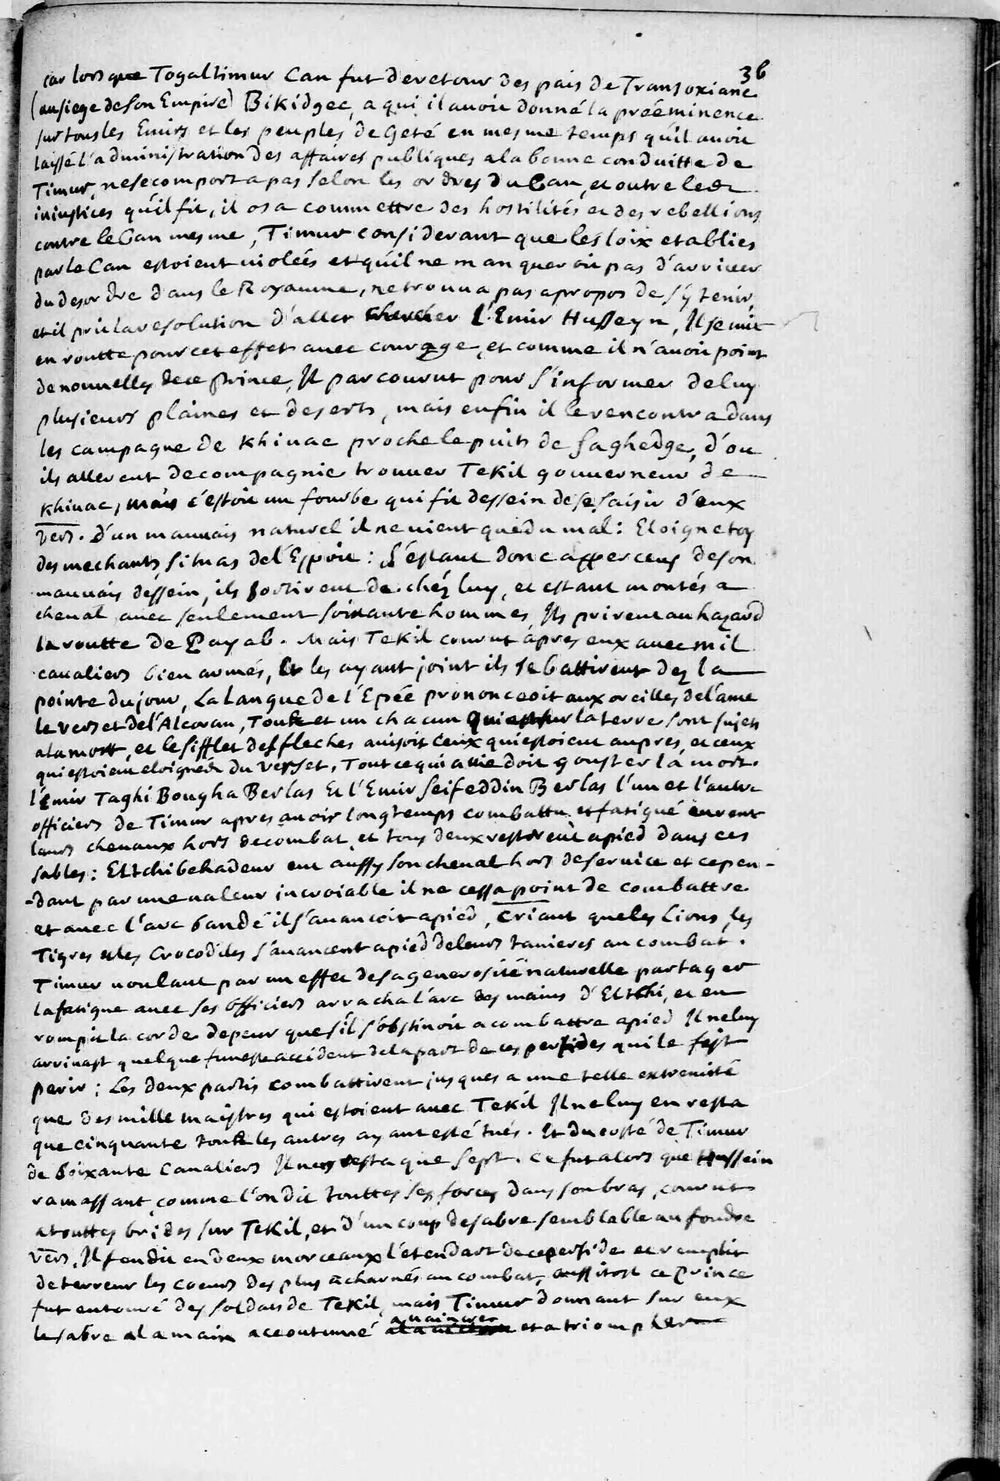 36
car lors que Togaltimur Can fut de retour des païs de Transoxiane
(au siege de son Empire) Bikidgec, a qui il avoit donné la prééminence
sur tous les Emirs et les peuples de Geté en mesme temps qu'il avoit
laissé l'administration des affaires publiques a la bonne conduitte de
Timur, ne se comporta pas selon les ordres du Can, et outre les
iniustices qu'il fit, il osa commettre des hostilités et des rebellions
contre le Can mesme, Timur considerant que les loix etablies
par le Can estoient violées et qu'il ne manqueroit pas d'arriver
du desordre dans le Royaume, ne trouva pas apropos de s'y tenir,
et il prit la resolution d'aller chercher l'Emir Husseyn, Il se mit
en routte pour cet effet avec courage, et comme il n'avoit point
de nouvelles de ce Prince, Il parcourut pour s'informer de luy
plusieurs plaines et deserts, mais enfin il le rencontra dans
les campagne de Khivac proche le puits de Saghedge, d'ou
ils allerent de compagnie trouver Tekil gouverneur de
Khivac, mais c'estoit un fourbe qui fit dessein de se saisir d'eux
Vers. D'un mauvais naturel il ne vient que du mal: Eloigne toy
des mechants, si tu as de l'Espoit: S'estant donc apperceus de son
mauvais dessein, ils sortirent de chéz luy, et estant montés a
cheval avec seulement soixante hommes, Ils prirent au hazard
la routte de Payab. Mais Tekil courut apres eux avec mil
cavaliers bien armés, Et les ayant joint ils se battirent dez la
pointe du jour, La Langue de l'Epée prononceoit aux oreilles de l'ame
le verset de l'Alcoran, Tout et un chacun qui est sur la terre sont sujets
a la mort, et le sifflet des fleches avisoit ceux qui estoient aupres, et ceux
qui estoient eloignés du verset, Tout ce qui a vie doit gouster la mort.
l'Emir Taghi Bougha Berlas Et l'Emir Seifeddin Berlas l'un et l'autre
officiers de Timur apres avoir longtemps combattu et fatigué eurent
leurs chevaux hors de combat et tous deux resterent apied dans ces
sables: Eltchi behadeur eut aussy son cheval hors de service et cepen-
-dant par une valeur incroiable il ne cessa point de combattre
et avec l'arc bandé il s'avancoit apied, criant que les Lions, les
Tigres et les Crocodiles s'avancent apied de leurs tanieres au combat.
Timur voulant par un effet de sa generosité naturelle partager
la fatigue avec ses officiers arracha l'arc des mains d'Eltchi, et en
rompit la corde de peur que s'il s'obstinoit a combattre apied Il ne luy
arrivast quelque funeste accident de la part de ces perfides qui le fist
perir: Les deux partis combattirent jusques a une telle extremité
que des mille maistres qui estoient avec Tekil Il ne luy en resta
que cinquante tous les autres ayant esté tués. Et du costé de Timur
de soixante Cavaliers Il n'en resta que sept. Ce fut alors que Hussein
ramassant comme l'on dit touttes ses forces dans son bras, courut
a touttes brides sur Tekil, et d'un coup de sabre semblable au foudre
Vers. Il fendit en deux morceaux l'étendart de ce perfide et remplit
de terreur les coeurs des plus acharnés au combat, aussitost ce Prince
fut entouré des soldats de Tekil, mais Timur donnant sur eux
le sabre a la main accoutumé a vaincre et a triompher